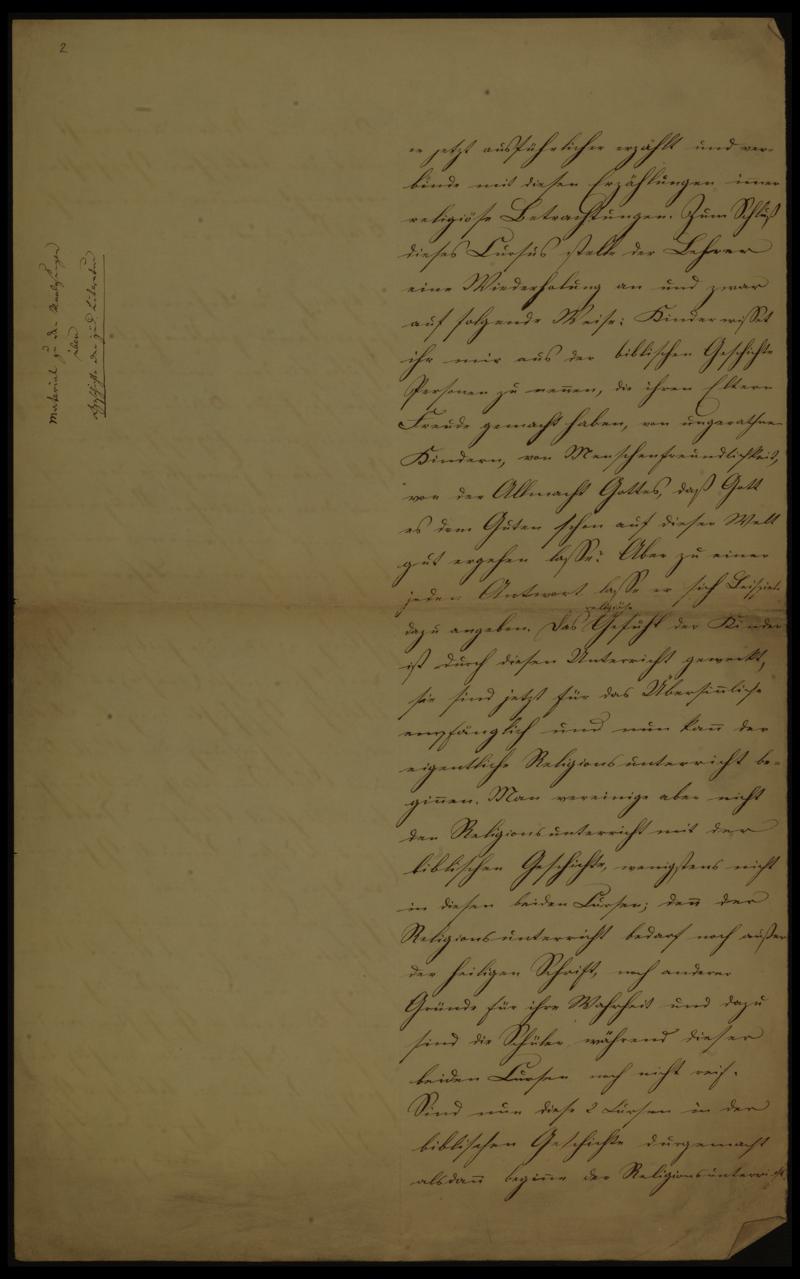 2
Material zu den
über
Geschichte der jüd. Literatur
er jetzt ausführlicher erzählt und ver-
binde mit diesen Erzählungen immer
religiöse Betrachtungen. Zum Schluß
dieses Cursus stelle der Lehrer
eine Wiederholung an und zwar
auf folgende Weise: Kinder wisset
ihr mir aus der biblischen Geschichte
Personen zu nennen, die ihren Eltern
Freude gemacht haben, von ungerathnen
Kindern, von Menschenfreundlichkeit,
von der Allmacht Gottes, daß Gott
es dem Guten schon auf dieser Welt
gut ergehen lasse? Aber zu einer
jeden Antwort lasse er sich Beispiele
dazu angeben. Das religiöse Gefühl der Kinder
ist durch diesen Unterricht geweckt,
sie sind jetzt für das Übersinnliche
empfänglich und nun kann der
eigentliche Religionsunterricht be-
ginnen. Man vereinige aber nicht
den Religionsunterricht mit der
biblischen Geschichte, wenigstens nicht
in diesen beiden Cursen; denn der
Religionsunterricht bedarf noch außer
der heiligen Schrift, noch anderer
Gründe für ihre Wahrheit und dazu
sind die Schüler während dieser
beiden Cursen noch nicht reif.
Sind nun diese 2 Cursen in der
biblischen Geschichte durgemacht
alsdann beginne der Religionsunterricht